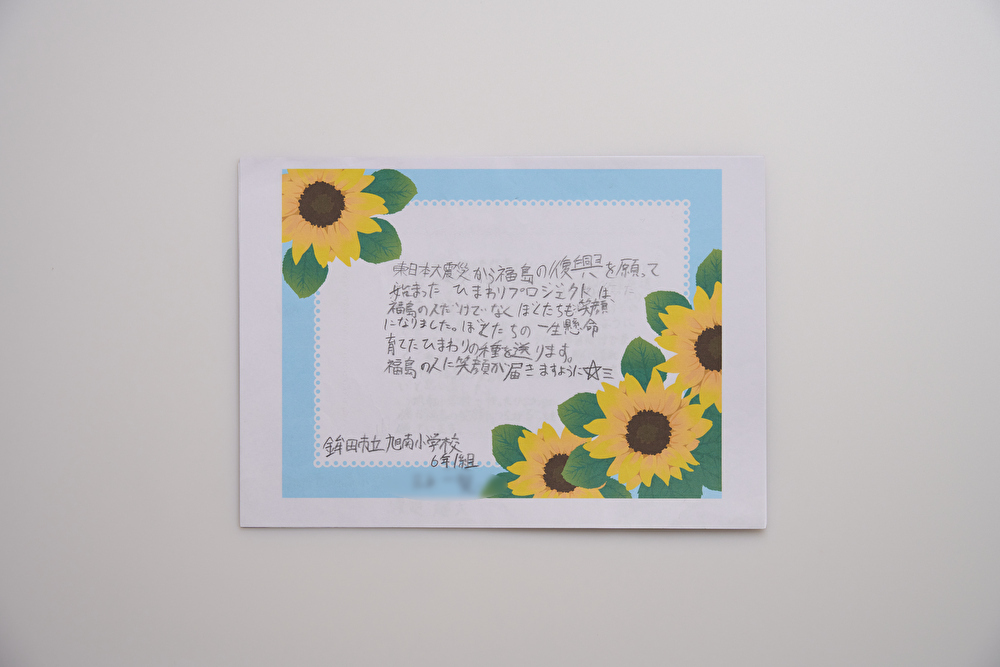 東日本大震災から福島の復興を願って
始まった ひまわりプロジェクトは、
福島の人だけでなくぼくたちも笑顔
になりました。ぼくたちの一生懸命
育てたひまわりの種を送ります。
福島の人に笑顔が届きますように☆三
鉾田市立旭南小学校
6年1組